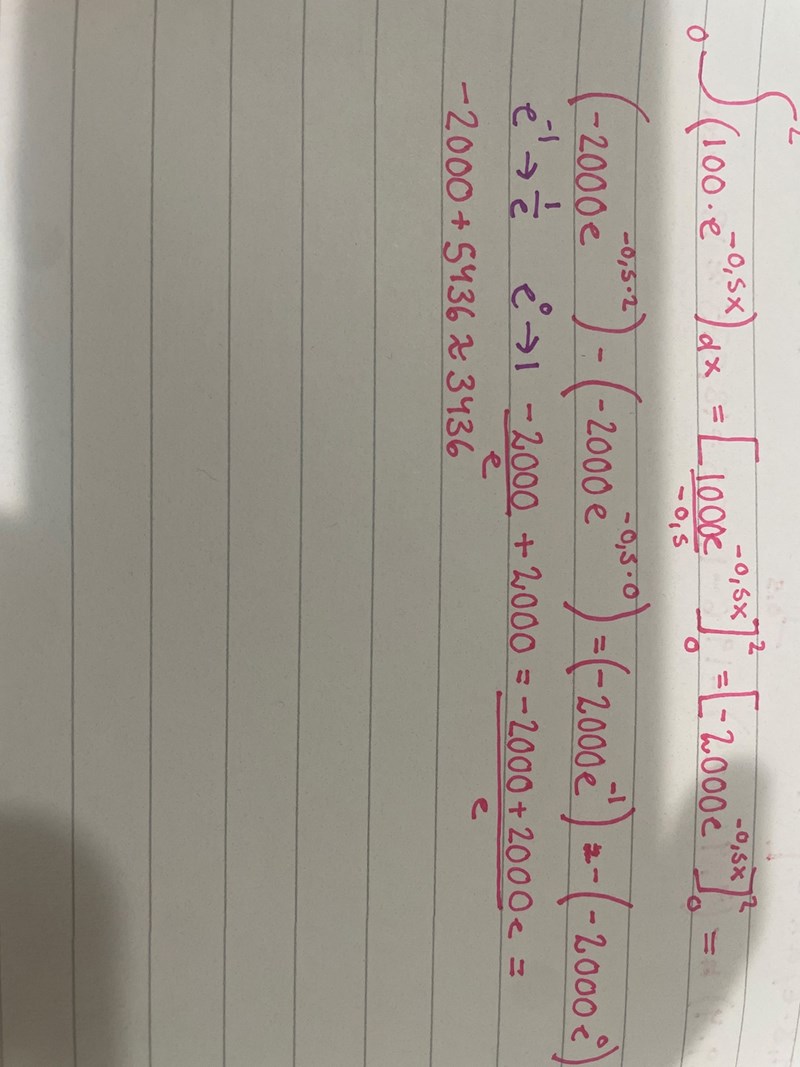 ∫₀² (100·e^(-0,5x)) dx = [1000e^(-0,5x) / -0,5]₀² = [-2000e^(-0,5x)]₀² =
(-2000e^(-0,5·2)) - (-2000e^(-0,5·0)) = (-2000e⁻¹) - (-2000e⁰)
e⁻¹ → 1/e e⁰ → 1 -2000/e + 2000 = (-2000 + 2000e)/e =
-2000 + 5436 ≈ 3436